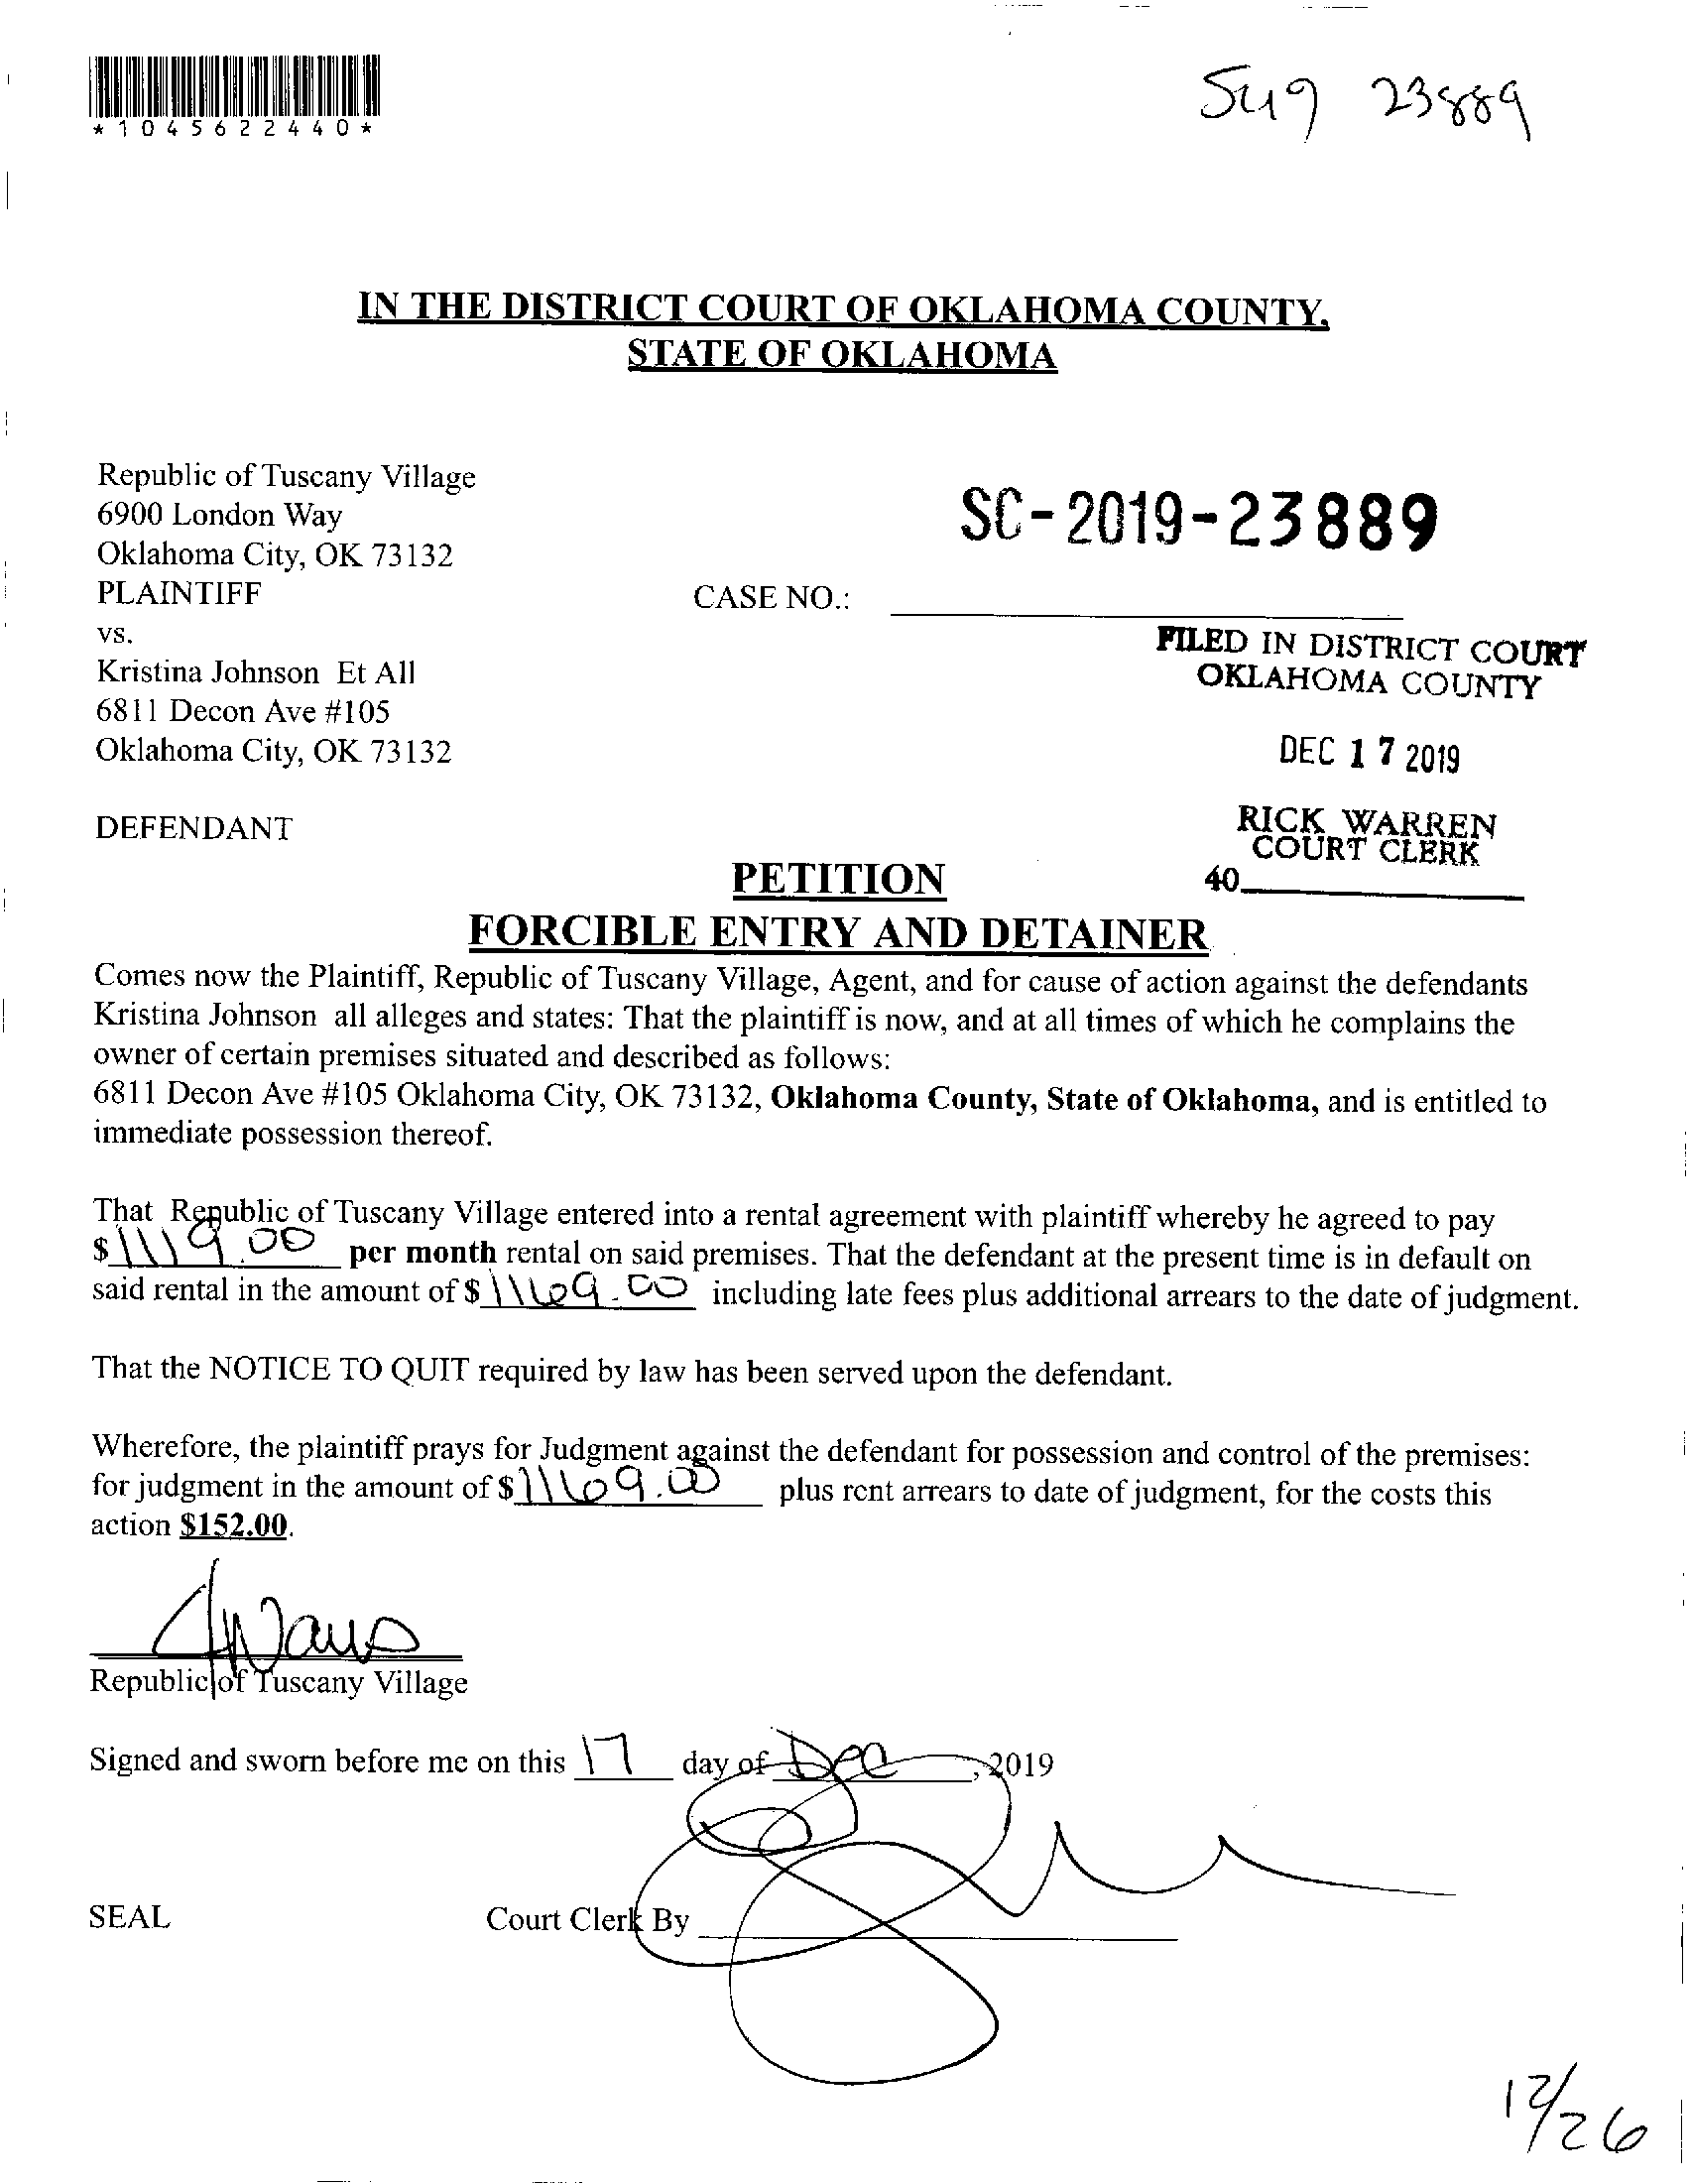 *1045622440*
SC19 23889
IN THE DISTRICT COURT OF OKLAHOMA COUNTY,
STATE OF OKLAHOMA
Republic of Tuscany Village
6900 London Way
Oklahoma City, OK 73132
PLAINTIFF
vs.
Kristina Johnson Et All
6811 Decon Ave #105
Oklahoma City, OK 73132
DEFENDANT
SC-2019-23889
CASE NO.:
FILED IN DISTRICT COURT
OKLAHOMA COUNTY
DEC 17 2019
RICK WARREN
COURT CLERK
40
PETITION
FORCIBLE ENTRY AND DETAINER
Comes now the Plaintiff, Republic of Tuscany Village, Agent, and for cause of action against the defendants
Kristina Johnson all alleges and states: That the plaintiff is now, and at all times of which he complains the
owner of certain premises situated and described as follows:
6811 Decon Ave #105 Oklahoma City, OK 73132, Oklahoma County, State of Oklahoma, and is entitled to
immediate possession thereof.
That Republic of Tuscany Village entered into a rental agreement with plaintiff whereby he agreed to pay
$1119.00 per month rental on said premises. That the defendant at the present time is in default on
said rental in the amount of $1169.00 including late fees plus additional arrears to the date of judgment.
That the NOTICE TO QUIT required by law has been served upon the defendant.
Wherefore, the plaintiff prays for Judgment against the defendant for possession and control of the premises:
for judgment in the amount of $1169.00 plus rent arrears to date of judgment, for the costs this
action $152.00.
Republic of Tuscany Village
Signed and sworn before me on this 17 day of Dec, 2019
SEAL
Court Clerk By
12/26